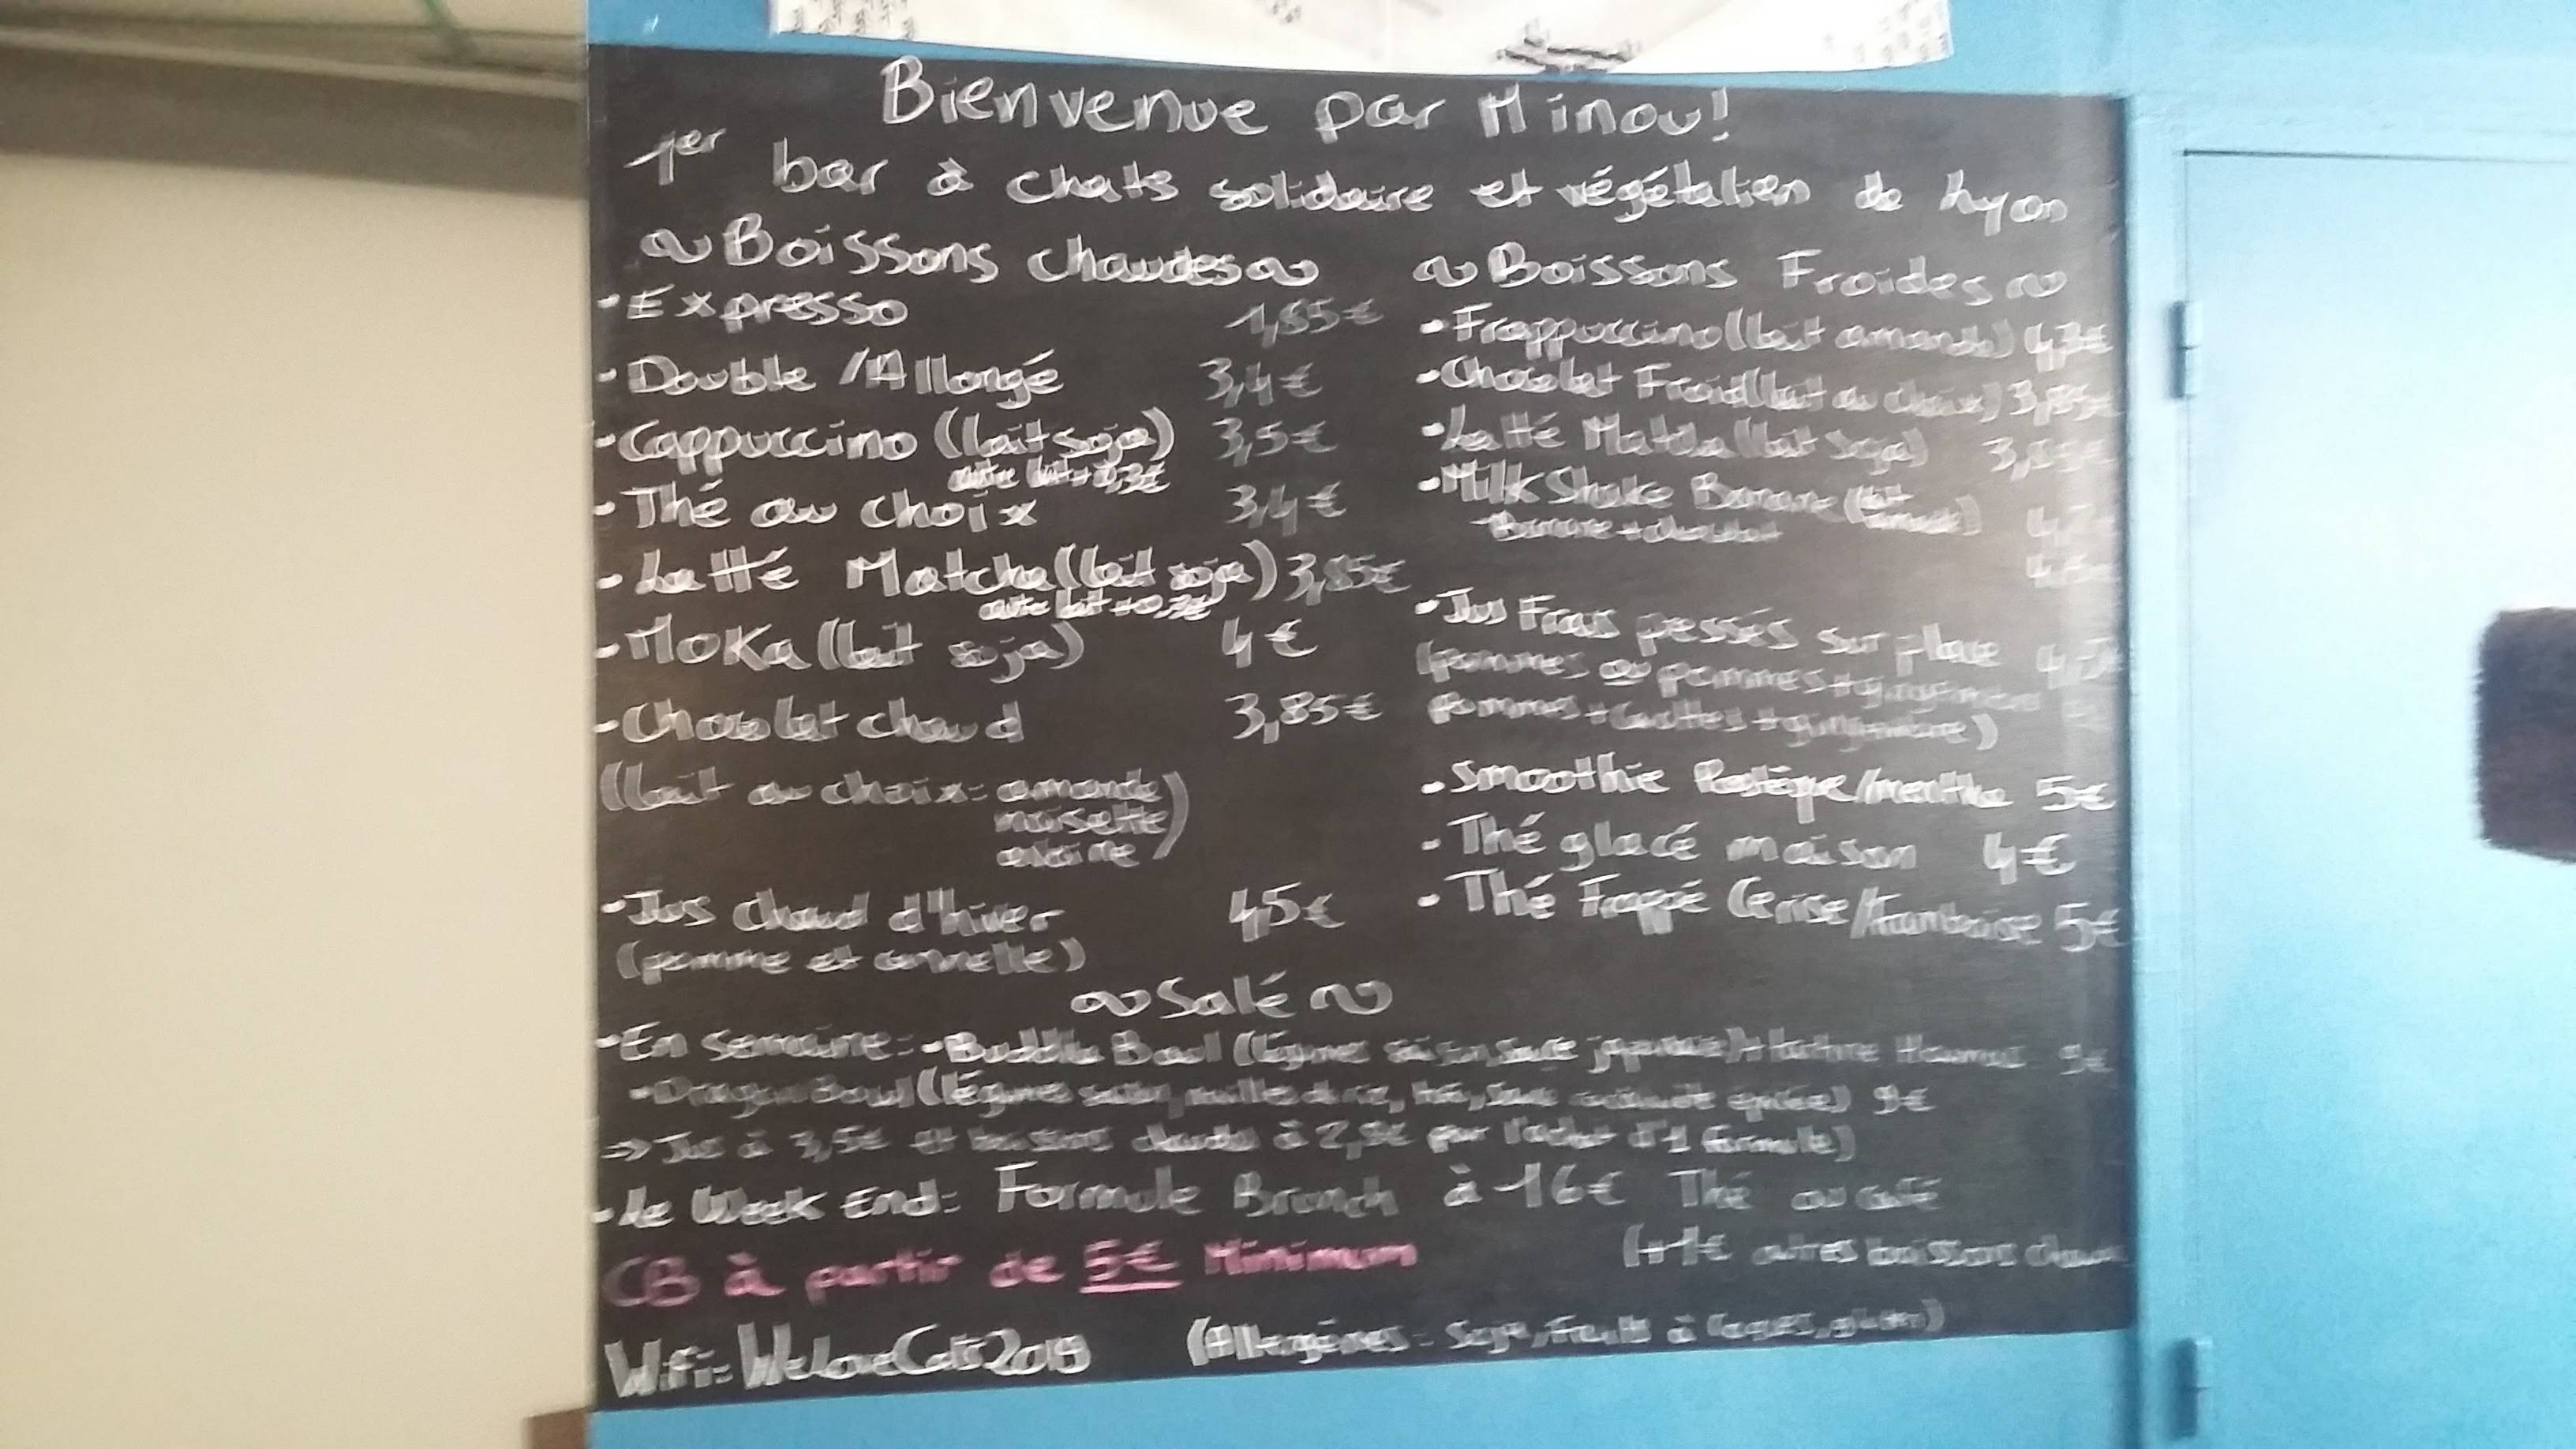 Bienvenue par Minou!
1er bar à chats solidaire et végétalien de Lyon
~Boissons chaudes~
-Expresso 1,85€
-Double /Allongé 3,4€
-Cappuccino (lait soja) 3,5€
autre lait +0,3€
-Thé au choix 3,4€
-Latté Matcha (lait soja) 3,85€
autre lait +0,3€
-Moka (lait soja) 4€
-Chocolat chaud 3,85€
(lait au choix: amande
noisette
avoine)
-Jus chaud d'hiver 4,5€
(pomme et cannelle)
~Boissons Froides~
-Frappuccino (lait amande)
-Chocolat Froid (lait au choix) 3,85€
-Latté Matcha (lait soja) 3,85€
-Milk Shake Banane (lait
-Banane + chocolat
-Jus Frais pessés sur place
(pommes ou pommes + gingembre
pommes + carottes + gingembre)
-Smoothie Pastèque/menthe 5€
-Thé glacé maison 4€
-Thé Frappé Cerise/framboise 5€
~Salé~
-En semaine: -Buddha Bowl (légumes saison, sauce japonaise) + tartine Houmous 9€
-Dragon Bowl (légumes saison, nouilles de riz, épicée) 9€
→ Jus à 3,5€ et boissons chaudes à 2,5€ par l'achat d'1 formule)
-Le Week End: Formule Brunch à 16€ Thé ou café
(+1€ autres boissons
CB à partir de 5€ Minimum
Wifi: WeLoveCats2019 (Allergènes: Soja, Fruits à Coques, gluten)